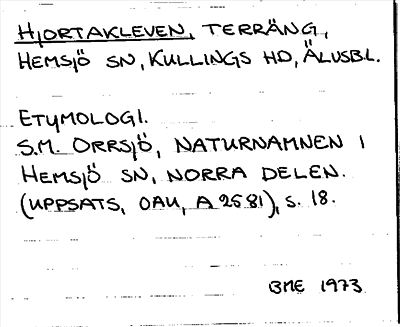 HJORTAKLEVEN, TERRÄNG,
HEMSJÖ SN, KULLINGS HD, ÄLVSBL.
ETYMOLOGI.
S.M. ORRSJÖ, NATURNAMNEN I
HEMSJÖ SN, NORRA DELEN.
(UPPSATS, OAU, A 2581), S. 18.
BME 1973